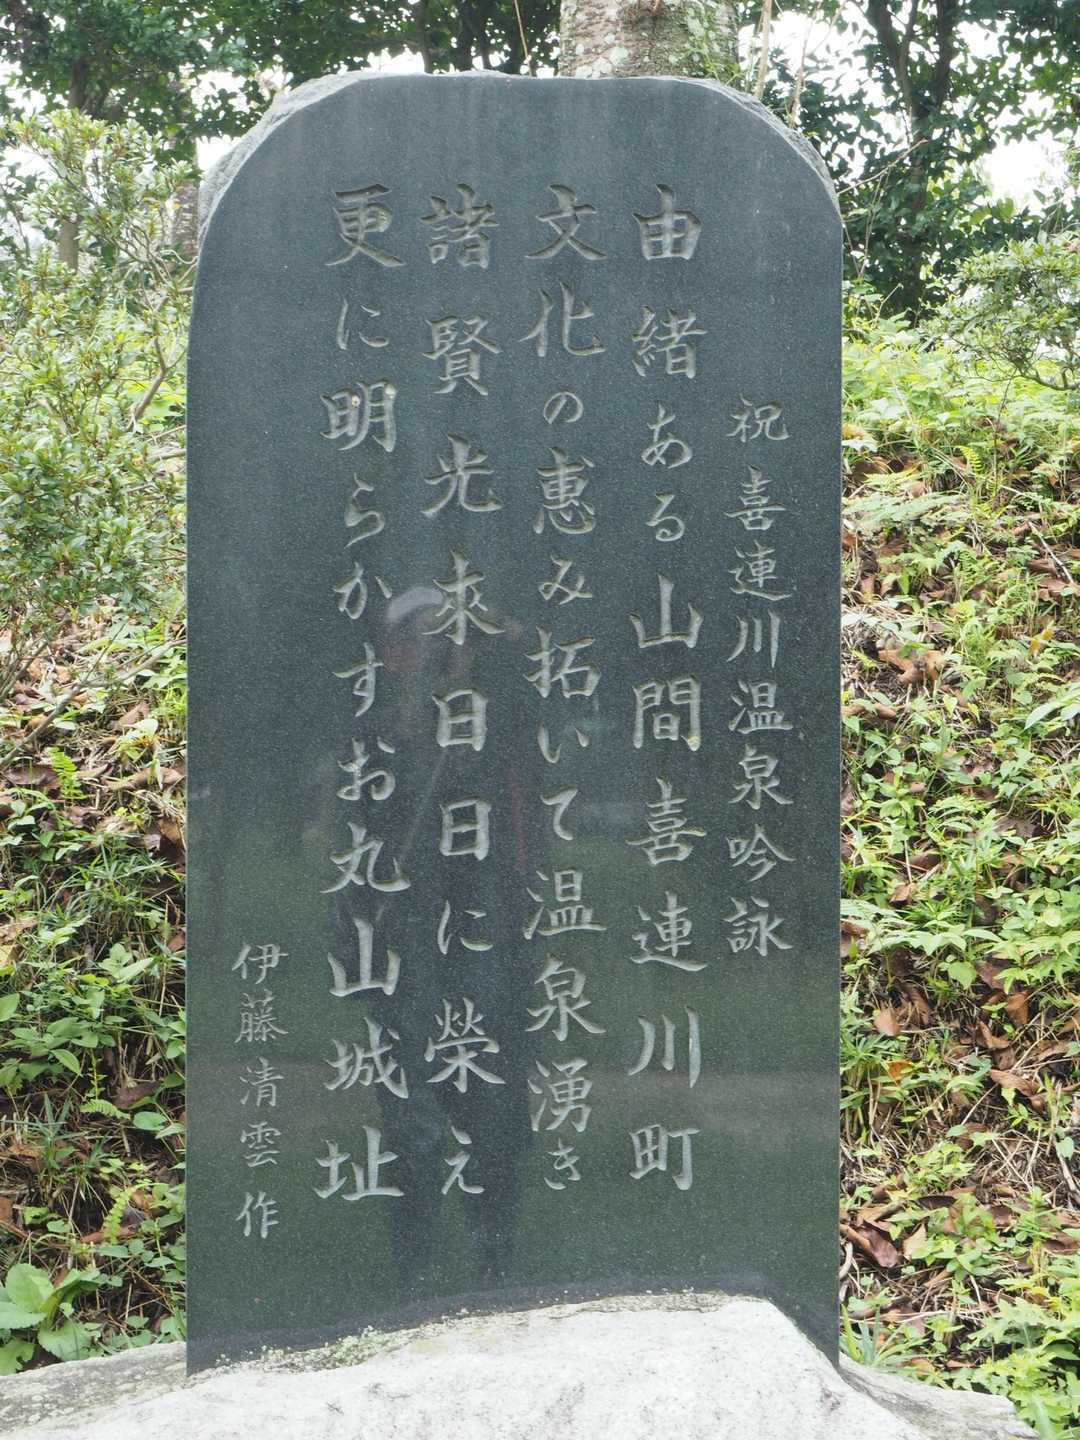 祝喜連川温泉吟詠
由緒ある山間喜連川町
文化の恵み拓いて温泉湧き
諸賢光来日日に榮え
更に明らかすお丸山城址
伊藤清雲作